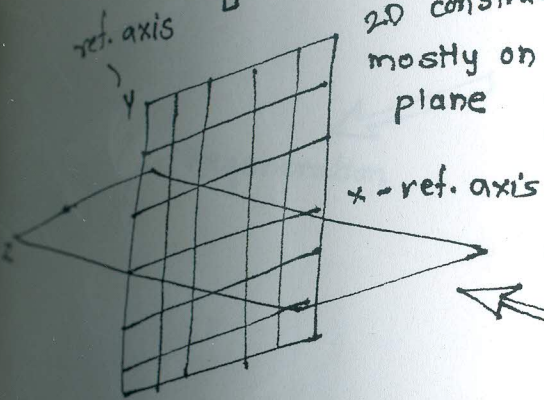 ref. axis
Y
2D
mostly on
plane
x - ref. axis